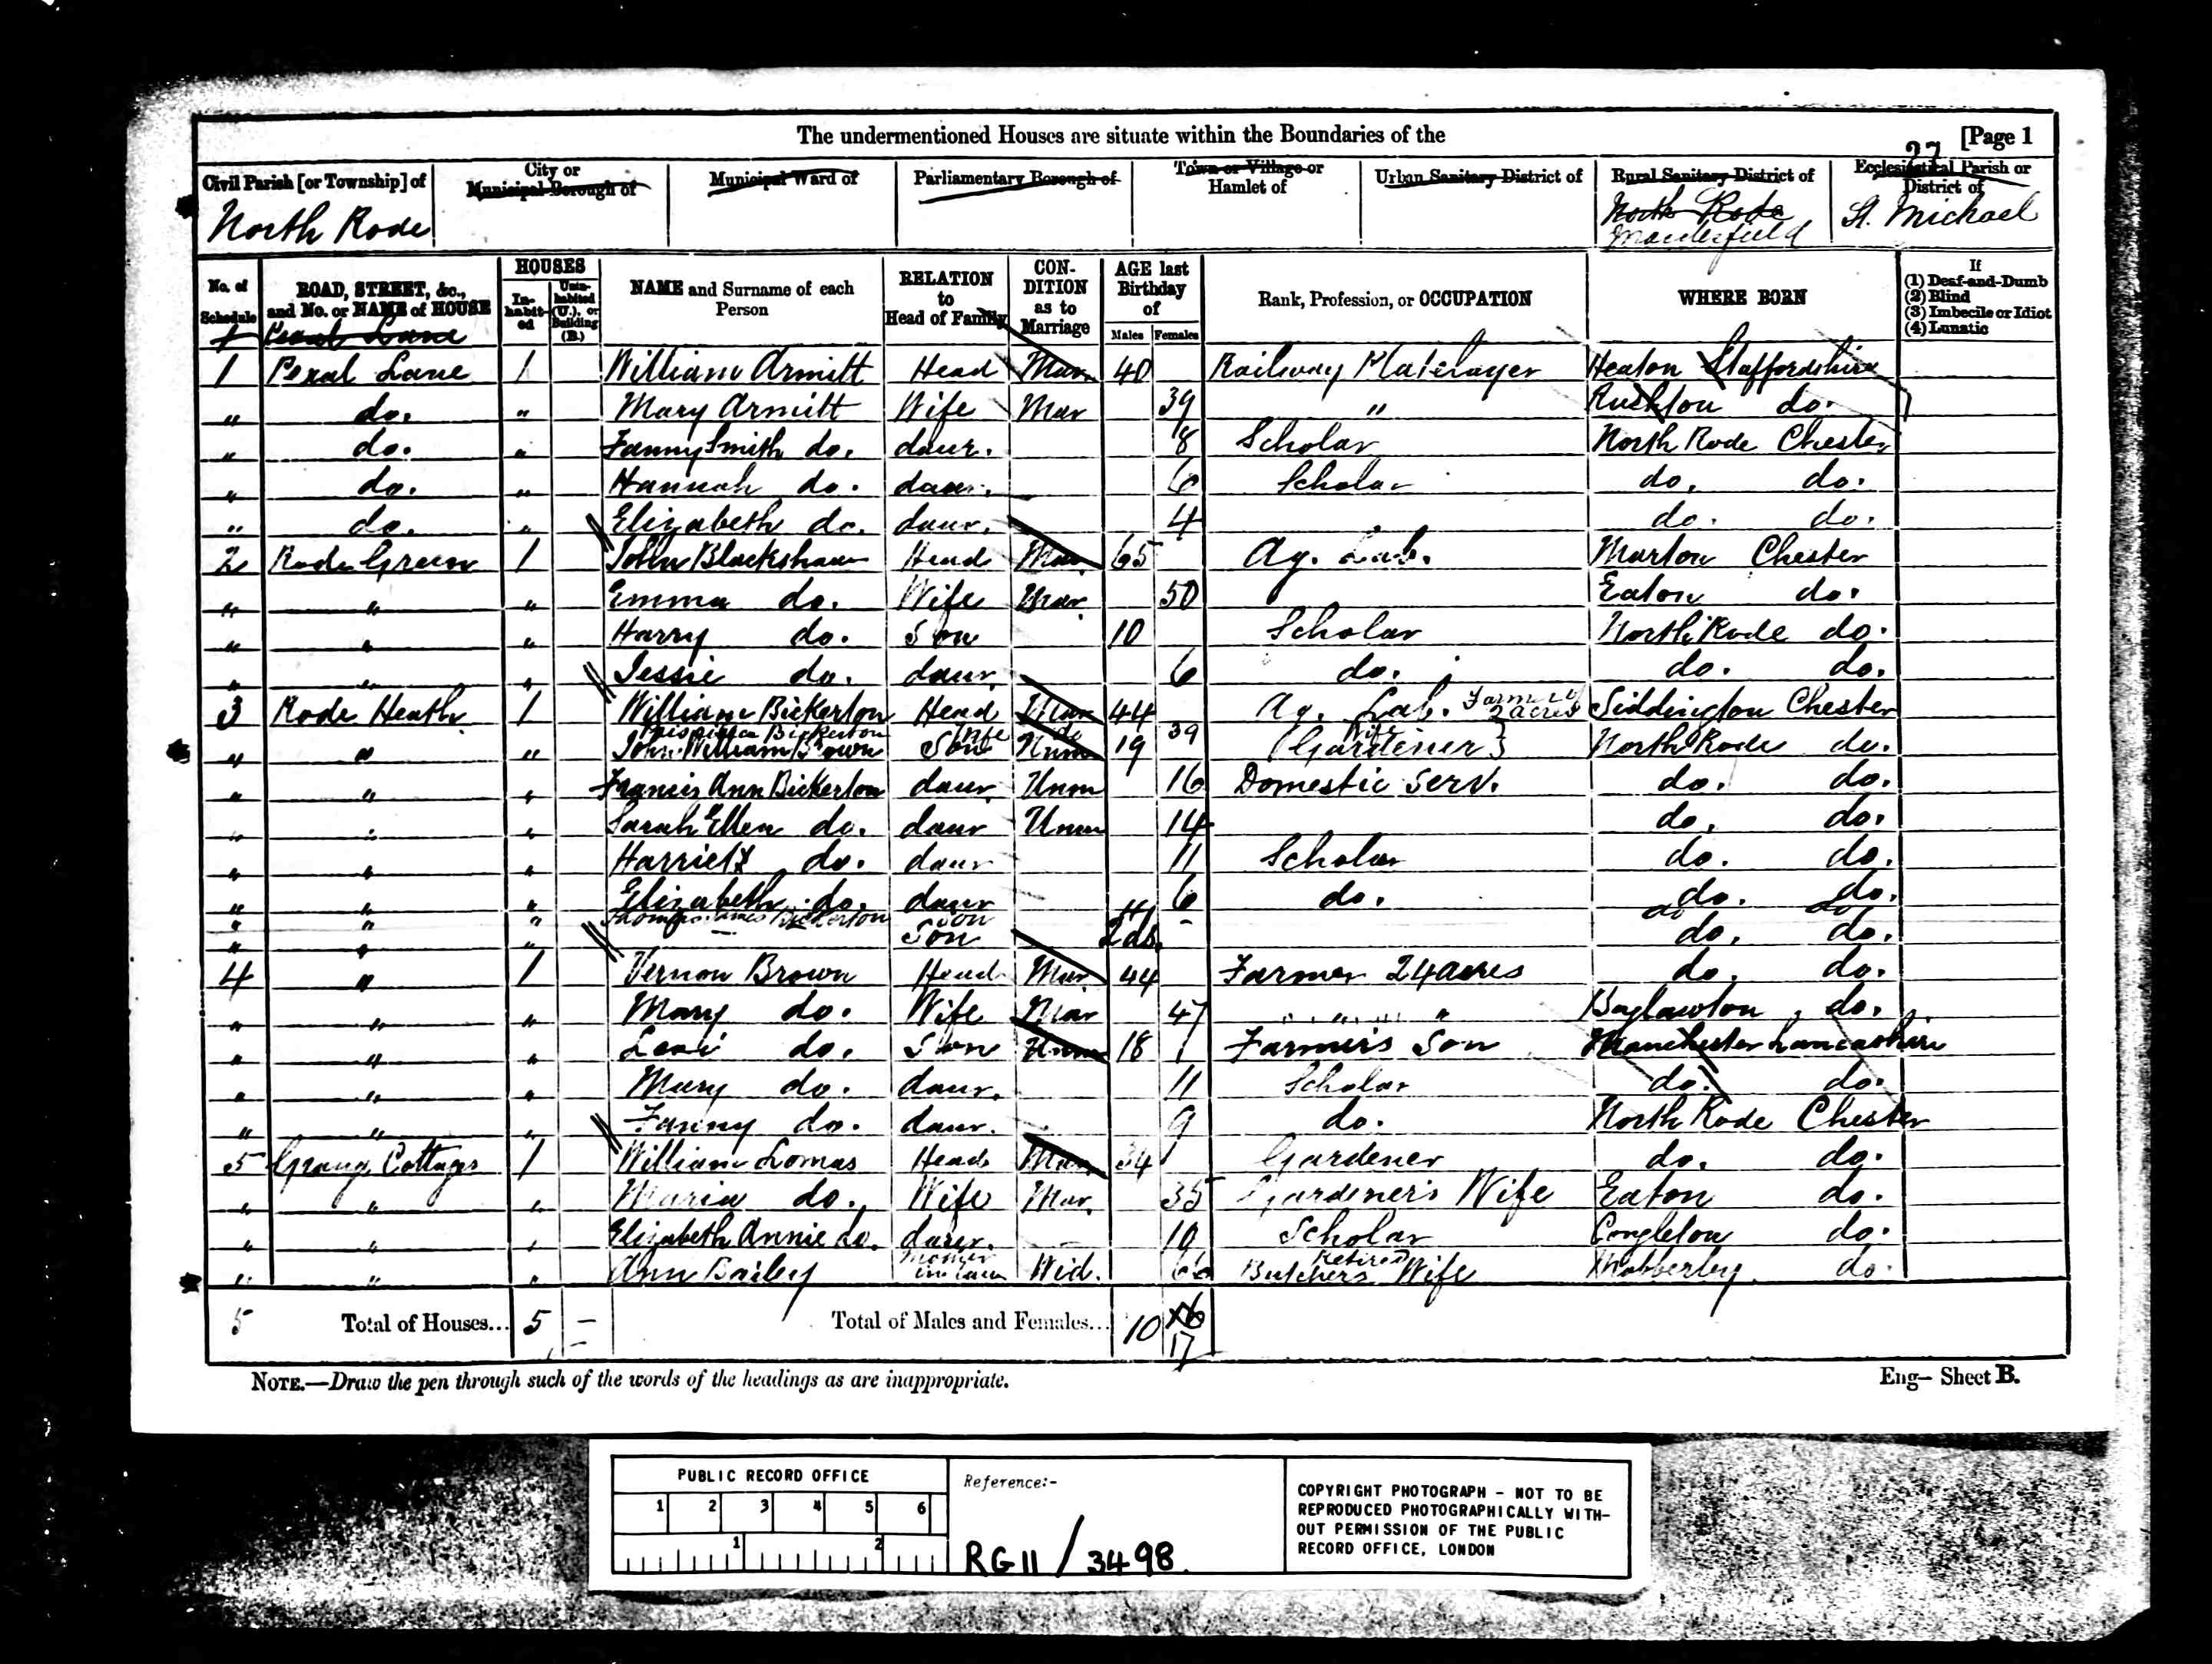 The undermentioned Houses are situate within the Boundaries of the [Page 1
27
Civil Parish [or Township] of City or Municipal Borough of Municipal Ward of Parliamentary Borough of Town or Village or Hamlet of Urban Sanitary District of Rural Sanitary District of Ecclesiastical Parish or District of
North Rode North Rode Macclesfield St. Michael
No. of Schedule ROAD, STREET, &c., and No. or NAME of HOUSE HOUSES In-habit-ed Unin-habited (U.), or Building (B.) NAME and Surname of each Person RELATION to Head of Family CON-DITION as to Marriage AGE last Birthday of Males Females Rank, Profession, or OCCUPATION WHERE BORN If (1) Deaf-and-Dumb (2) Blind (3) Imbecile or Idiot (4) Lunatic
1 Lane
1 Pexal Lane 1 William Armitt Head Mar 40 Railway Platelayer Heaton Staffordshire
" do. " Mary Armitt Wife Mar 39 " Rushton do.
" do. " Fanny Smith do. daur. 8 Scholar North Rode Chester
" do. " Hannah do. daur. 6 Scholar do. do.
" do. " Elizabeth do. daur. 4 do. do.
2 Rode Green 1 John Blackshaw Head Mar 65 Ag. Lab. Marton Chester
" " " Emma do. Wife Mar 50 Eaton do.
" " " Harry do. Son 10 Scholar North Rode do.
" " " Jessie do. daur. 6 do. do. do.
3 Rode Heath 1 William Bickerton Head Mar 44 Ag. Lab. Farmer of 2 acres Siddington Chester
Bickerton Wife do 39 Wife
" " " John William Brown Son Unm 19 Gardener North Rode do.
" " " Francis Ann Bickerton daur. Unm 16 Domestic Serv. do. do.
" " " Sarah Ellen do. daur Unm 14 do. do.
" " " Harriett do. daur 11 Scholar do. do.
" " " Elizabeth do. daur 6 do. do. do.
" " " Thomas James Bickerton Son 4 - do do
" " " Son 2ds. do. do.
4 " 1 Vernon Brown Head Mar 44 Farmer 24 acres do. do.
" " " Mary do. Wife Mar 47 " " " " Buglawton do.
" " " Levi do. Son Unm 18 Farmer's Son Manchester Lancashire
" " " Mary do. daur. 11 Scholar do. do.
" " " Fanny do. daur. 9 do. North Rode Chester
5 Grang Cottages 1 William Lomas Head Mar 34 Gardener do. do.
" " " Maria do. Wife Mar. 35 Gardener's Wife Eaton do.
" " " Elizabeth Annie do. daur. 10 Scholar Congleton do.
" " " Ann Bailey Mother in law Wid. 66 Butchers Retired Wife Mobberley do.
5 Total of Houses... 5 - Total of Males and Females... 10 16 17
NOTE.—Draw the pen through such of the words of the headings as are inappropriate. Eng— Sheet B.
PUBLIC RECORD OFFICE
1 2 3 4 5 6
1 2
Reference:-
RG 11 / 3498
COPYRIGHT PHOTOGRAPH - NOT TO BE
REPRODUCED PHOTOGRAPHICALLY WITH-
OUT PERMISSION OF THE PUBLIC
RECORD OFFICE, LONDON